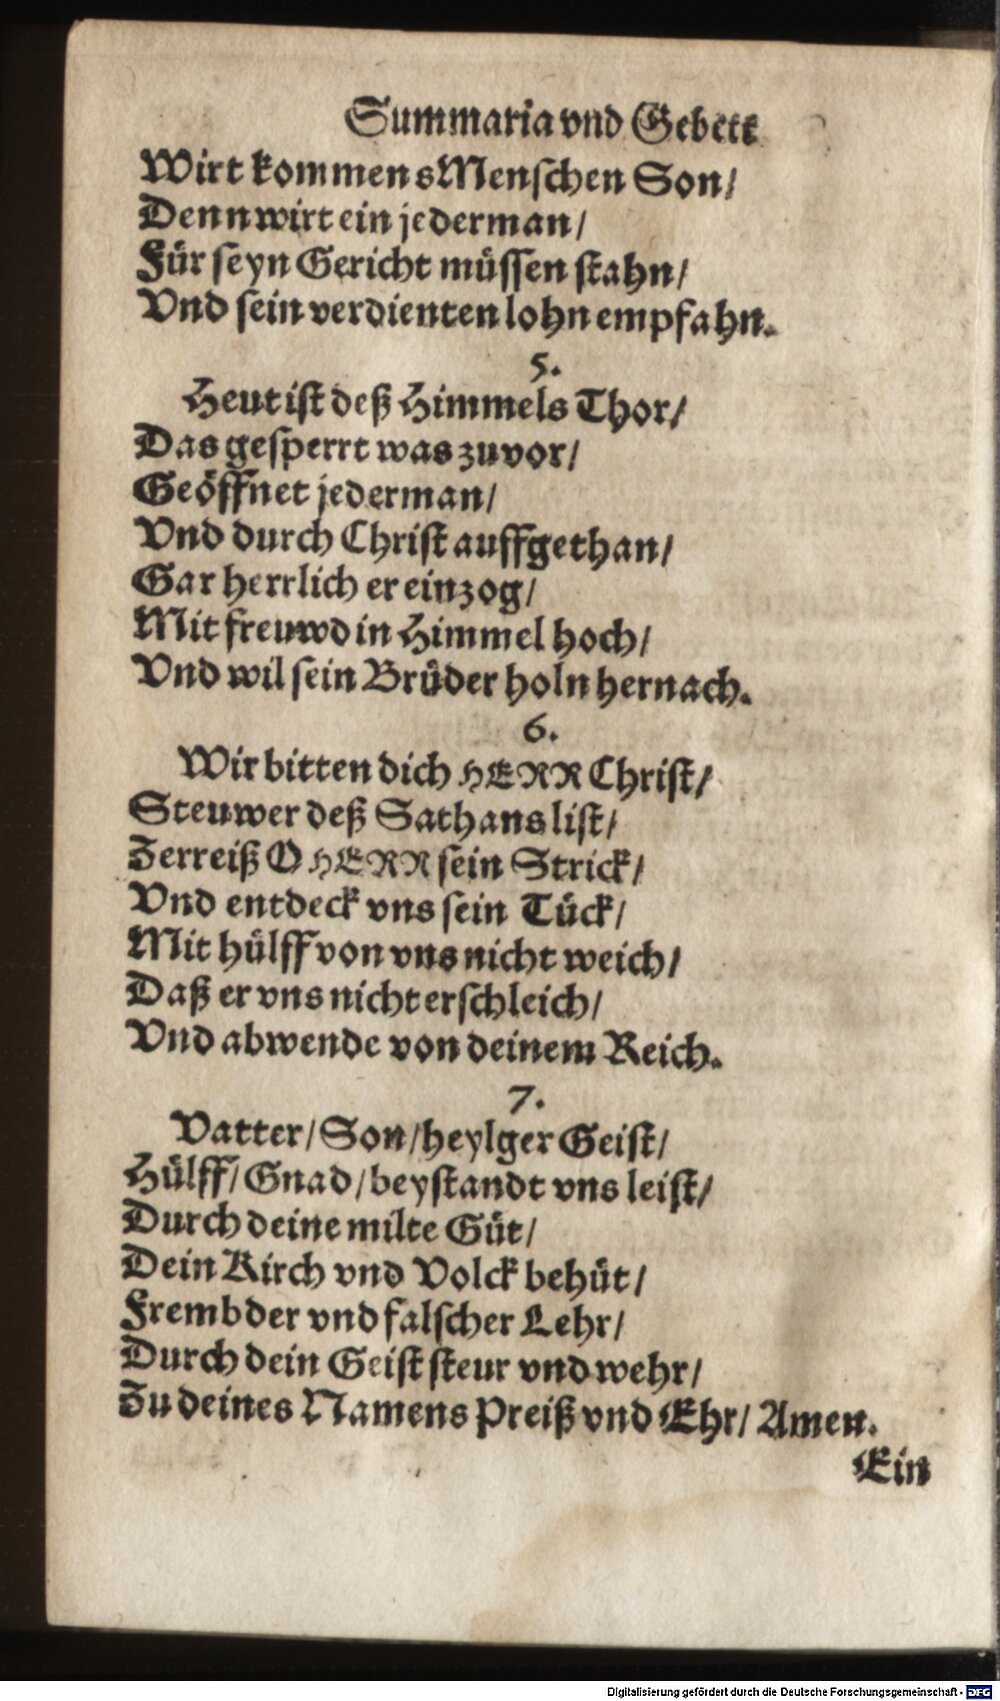 Summaria vnd Gebett
Wirt kommens Menschen Son/
Denn wirt ein jederman/
Für seyn Gericht müssen stahn/
Vnd sein verdienten lohn empfahn.
5.
Heut ist deß Himmels Thor/
Das gesperrt was zuvor/
Geöffnet jederman/
Vnd durch Christ auffgethan/
Gar herrlich er einzog/
Mit freuwd in Himmel hoch/
Vnd wil sein Brüder holn hernach.
6.
Wir bitten dich HERR Christ/
Steuwer deß Sathans list/
Zerreiß O HERR sein Strick/
Vnd entdeck vns sein Tück/
Mit hülff von vns nicht weich/
Daß er vns nicht erschleich/
Vnd abwende von deinem Reich.
7.
Vatter/ Son/ heylger Geist/
Hülff/ Gnad/ beystandt vns leist/
Durch deine milte Güt/
Dein Kirch vnd Volck behüt/
Frembder vnd falscher Lehr/
Durch dein Geist steur vnd wehr/
Zu deines Namens Preiß vnd Ehr/ Amen.
Ein
Digitalisierung gefördert durch die Deutsche Forschungsgemeinschaft - DFG